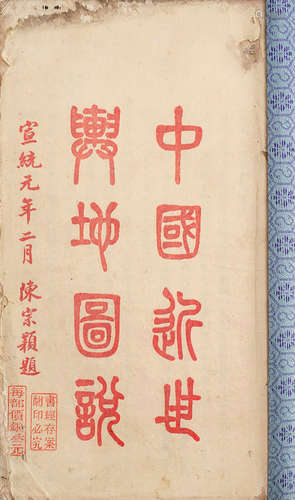 中國近世
輿地圖說
宣統元年二月陳宗穎題
書經存案
翻印必究
每部價銀